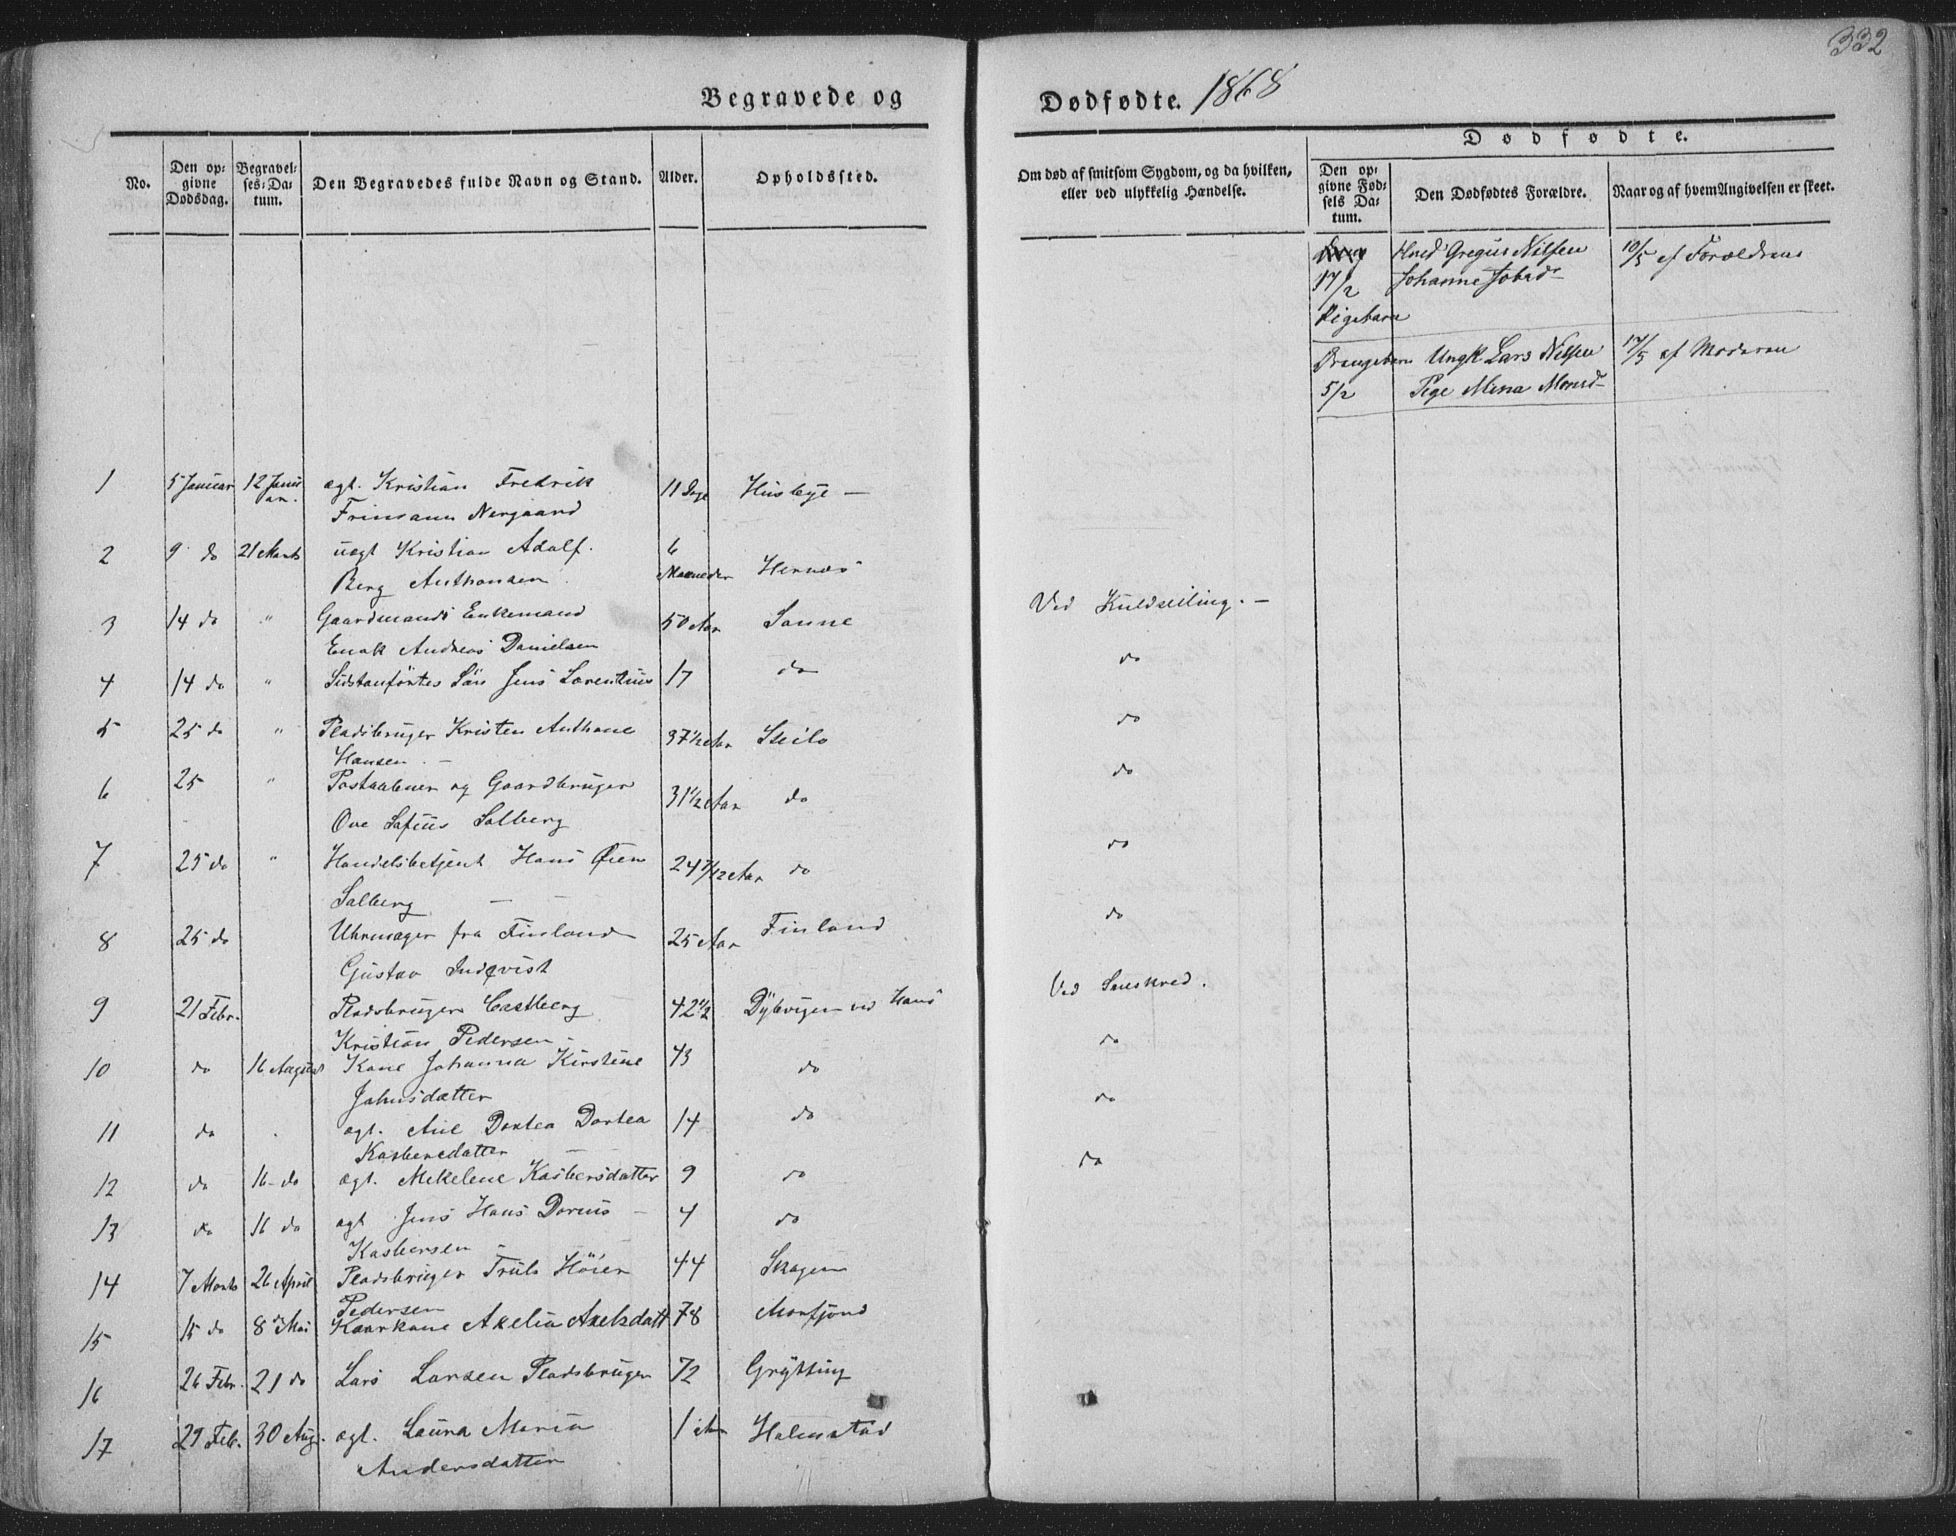 332
Begravede og Dødfødte. 1868
Dødfødte.
No.
Den opgivne Dødsdag.
Begravelses-Datum.
Den Begravedes fulde Navn og Stand.
Alder.
Opholdssted.
Om død af smitsom Sygdom, og da hvilken, eller ved ulykkelig Hændelse.
Den opgivne Fødsels Datum.
Den Dødfødtes Forældre.
Naar og af hvem Angivelsen er skeet.
Gregus Nilsen 10/5 af Forældrene
17/2 Johanne
Pigebarn
Drengebarn Ungk Lars Nilsen 17/5 af Moderen
5/2 Pige Mina Monsd
1 5 Januar 12 Januar. ægt. Kristian Fredrik 11 Dage Husbye
Frimann Nergaard
2 9 do 21 Marts uægt Kristian Adolf 6 Maaneder Hernes
Berg Anthonsen
3 14 do " Gaardmands Enkemand 50 Aar Sanne Ved Kuldseiling.
Enok Andreas Danielsen
4 14 do " Sidstanførtes Søn Jens Lorentius 17 do do
5 25 do " Pladsbruger Kristen Anthone 37½ Aar Steilo do
Hansen.
6 25 " Postaabner og Gaardbruger 31½ Aar do do
Ove Sofus Solberg
7 25 do " Handelsbetjent Hans 24 7/12 Aar do do
Solberg
8 25 do Uhrmager fra Finland 25 Aar Finland do
Gustav Indqvist
9 21 Febr. Pladsbruger Castberg 42½ Dybvigen ved Hans Ved Sneskred.
Kristian Pedersen
10 do 16 August Kone Johanna Kirstine 43 do do
Johnsdatter
11 do ægt. Ane Dortea Dortea 14 do do
Kasbersdatter
12 do 16 do ægt. Mekeline Kasbersdatter 9 do do
13 do 16 do ægt Jens Hans Dorius 4 do
Kasbersen
14 7 Marts 26 April Pladsbruger Truls Høier 44 Skagen
Pedersen
15 15 do 8de Mai Kaarkone Axelia Axelsdatt 78 Morfjord
16 26 Febr. 21 do Lars Larsen Pladsbruger 72 Grytting
17 29 Feb. 30 Aug. ægt. Laura Maria 1 Aar Holmstad
Andersdatter